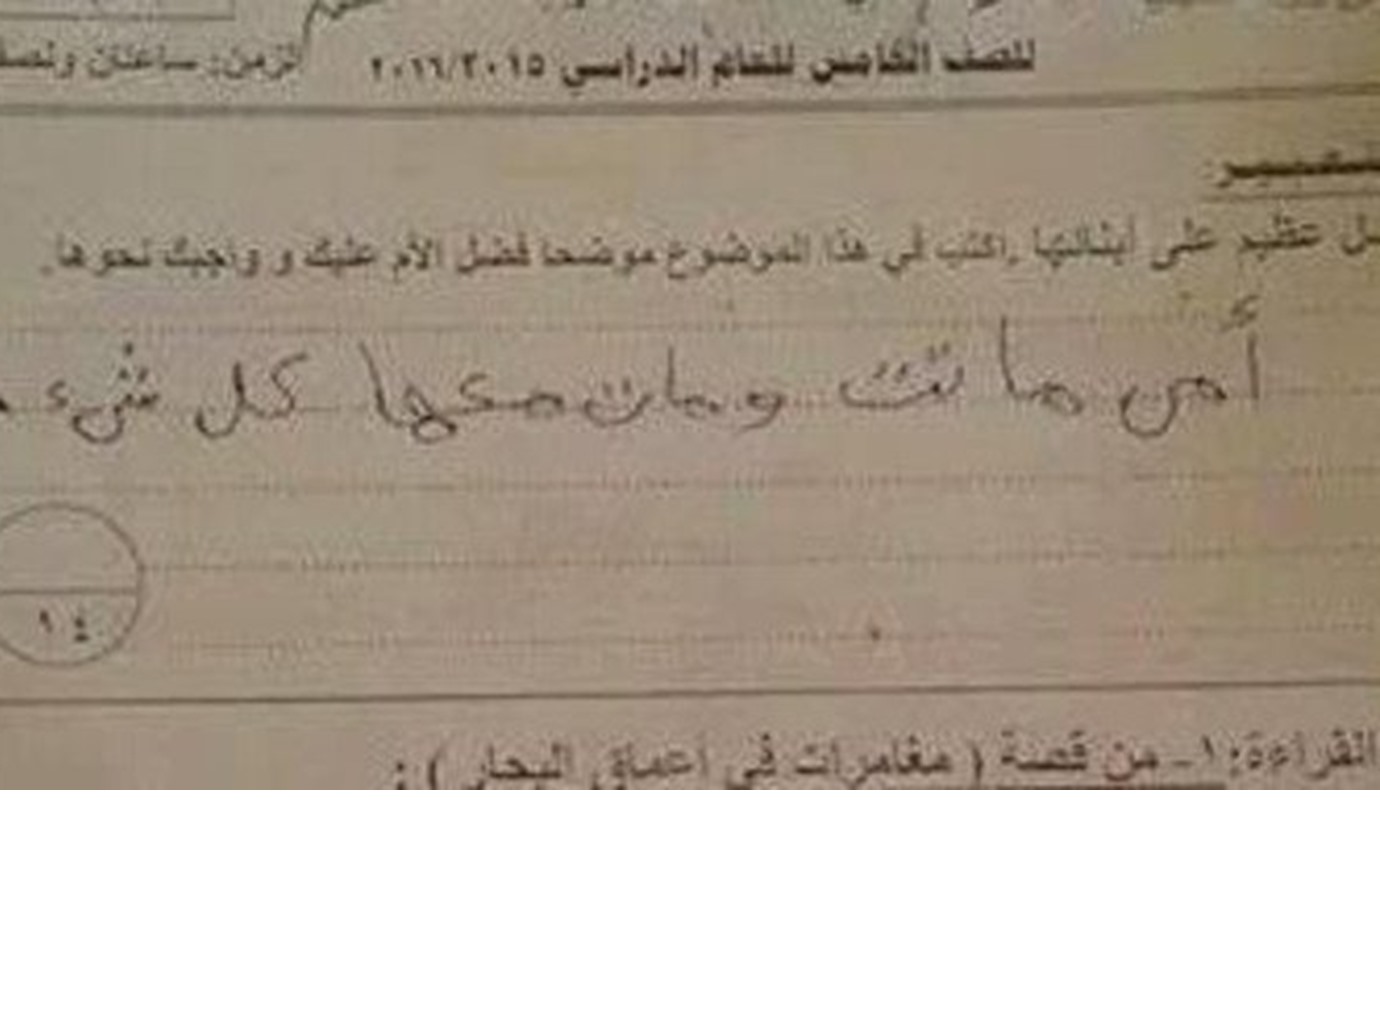 للصف الخامس للعام الدراسي ٢٠١٥/٢٠١٦ الزمن: ساعتان ونصف
التعبير
عظيم على أبنائها .اكتب في هذا الموضوع موضحا فضل الأم عليك و واجبك نحوها.
أمي ماتت ومات معها كل شيء
١٤
القراءة: ١- من قصة ( مغامرات في أعماق البحار ) :